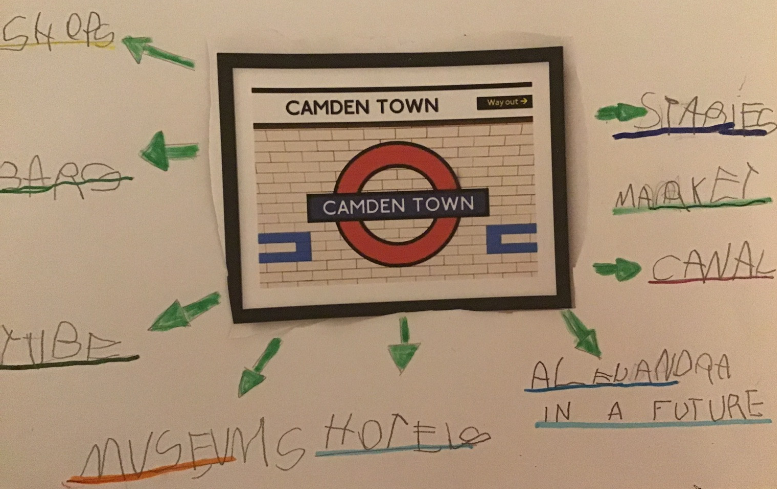 SHOPS
CAMDEN TOWN
Way out →
CAMDEN TOWN
STABLES
BARS
MARKET
CANAL
TUBE
ALEXANDRA
IN A FUTURE
MUSEUMS
HOTELS